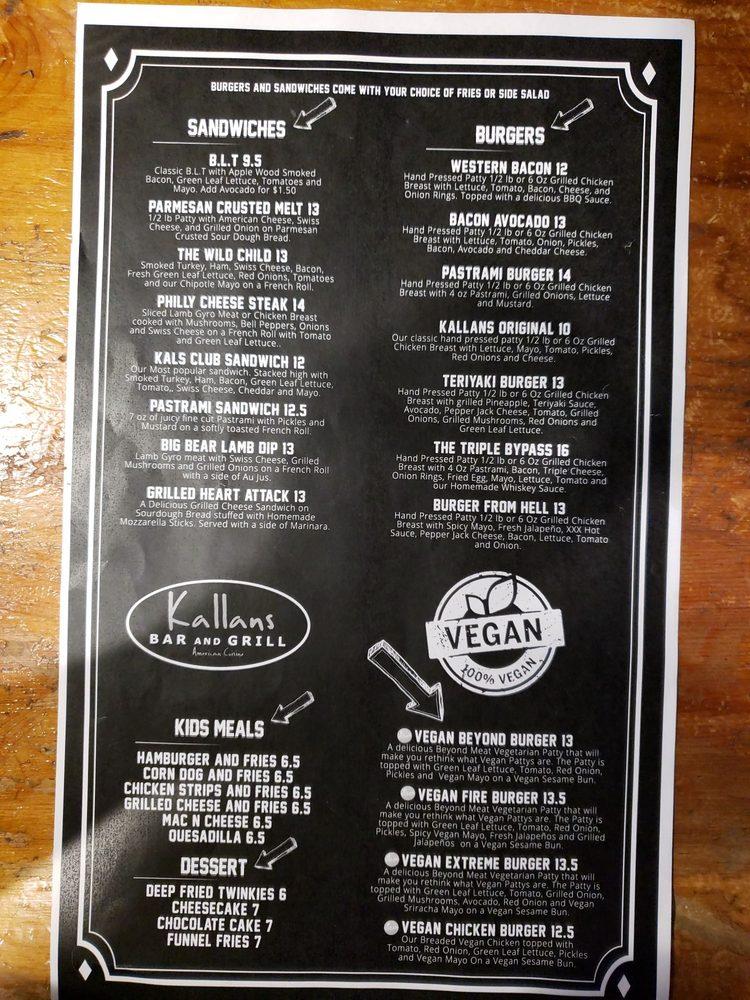 BURGERS AND SANDWICHES COME WITH YOUR CHOICE OF FRIES OR SIDE SALAD
SANDWICHES
B.L.T 9.5
Classic B.L.T with Apple Wood Smoked
Bacon, Green Leaf Lettuce, Tomatoes and
Mayo. Add Avocado for $1.50
PARMESAN CRUSTED MELT 13
1/2 lb Patty with American Cheese, Swiss
Cheese, and Grilled Onion on Parmesan
Crusted Sour Dough Bread.
THE WILD CHILD 13
Smoked Turkey, Ham, Swiss Cheese, Bacon,
Fresh Green Leaf Lettuce, Red Onions, Tomatoes
and our Chipotle Mayo on a French Roll.
PHILLY CHEESE STEAK 14
Sliced Lamb Gyro Meat or Chicken Breast
cooked with Mushrooms, Bell Peppers, Onions
and Swiss Cheese on a French Roll with Tomato
and Green Leaf Lettuce..
KALS CLUB SANDWICH 12
Our Most popular sandwich. Stacked high with
Smoked Turkey, Ham, Bacon, Green Leaf Lettuce,
Tomato,, Swiss Cheese, Cheddar and Mayo.
PASTRAMI SANDWICH 12.5
7 oz of juicy fine cut Pastrami with Pickles and
Mustard on a softly toasted French Roll.
BIG BEAR LAMB DIP 13
Lamb Gyro meat with Swiss Cheese, Grilled
Mushrooms and Grilled Onions on a French Roll
with a side of Au Jus.
GRILLED HEART ATTACK 13
A Delicious Grilled Cheese Sandwich on
Sourdough Bread stuffed with Homemade
Mozzarella Sticks. Served with a side of Marinara.
Kallans
BAR AND GRILL
American Cuisine
KIDS MEALS
HAMBURGER AND FRIES 6.5
CORN DOG AND FRIES 6.5
CHICKEN STRIPS AND FRIES 6.5
GRILLED CHEESE AND FRIES 6.5
MAC N CHEESE 6.5
QUESADILLA 6.5
DESSERT
DEEP FRIED TWINKIES 6
CHEESECAKE 7
CHOCOLATE CAKE 7
FUNNEL FRIES 7
BURGERS
WESTERN BACON 12
Hand Pressed Patty 1/2 lb or 6 Oz Grilled Chicken
Breast with Lettuce, Tomato, Bacon, Cheese, and
Onion Rings. Topped with a delicious BBQ Sauce.
BACON AVOCADO 13
Hand Pressed Patty 1/2 lb or 6 Oz Grilled Chicken
Breast with Lettuce, Tomato, Onion, Pickles,
Bacon, Avocado and Cheddar Cheese.
PASTRAMI BURGER 14
Hand Pressed Patty 1/2 lb or 6 Oz Grilled Chicken
Breast with 4 oz Pastrami, Grilled Onions, Lettuce
and Mustard.
KALLANS ORIGINAL 10
Our classic hand pressed patty 1/2 lb or 6 Oz Grilled
Chicken Breast with Lettuce, Mayo, Tomato, Pickles,
Red Onions and Cheese.
TERIYAKI BURGER 13
Hand Pressed Patty 1/2 lb or 6 Oz Grilled Chicken
Breast with grilled Pineapple, Teriyaki Sauce,
Avocado, Pepper Jack Cheese, Tomato, Grilled
Onions, Grilled Mushrooms, Red Onions and
Green Leaf Lettuce.
THE TRIPLE BYPASS 16
Hand Pressed Patty 1/2 lb or 6 Oz Grilled Chicken
Breast with 4 Oz Pastrami, Bacon, Triple Cheese,
Onion Rings, Fried Egg, Mayo, Lettuce, Tomato and
our Homemade Whiskey Sauce.
BURGER FROM HELL 13
Hand Pressed Patty 1/2 lb or 6 Oz Grilled Chicken
Breast with Spicy Mayo, Fresh Jalapeño, XXX Hot
Sauce, Pepper Jack Cheese, Bacon, Lettuce, Tomato
and Onion.
VEGAN
100% VEGAN
VEGAN BEYOND BURGER 13
A delicious Beyond Meat Vegetarian Patty that will
make you rethink what Vegan Pattys are. The Patty is
topped with Green Leaf Lettuce, Tomato, Red Onion,
Pickles and Vegan Mayo on a Vegan Sesame Bun.
VEGAN FIRE BURGER 13.5
A delicious Beyond Meat Vegetarian Patty that will
make you rethink what Vegan Pattys are. The Patty is
topped with Green Leaf Lettuce, Tomato, Red Onion,
Pickles, Spicy Vegan Mayo, Fresh Jalapeños and Grilled
Jalapeños on a Vegan Sesame Bun.
VEGAN EXTREME BURGER 13.5
A delicious Beyond Meat Vegetarian Patty that will
make you rethink what Vegan Pattys are. The Patty is
topped with Green Leaf Lettuce, Tomato, Grilled Onion,
Grilled Mushrooms, Avocado, Red Onion and Vegan
Sriracha Mayo on a Vegan Sesame Bun.
VEGAN CHICKEN BURGER 12.5
Our Breaded Vegan Chicken topped with
Tomato, Red Onion, Green Leaf Lettuce, Pickles
and Vegan Mayo On a Vegan Sesame Bun.